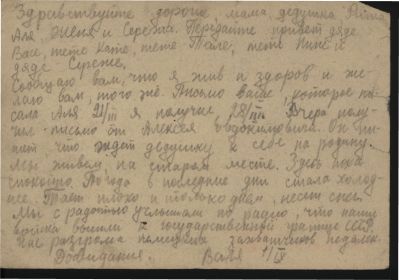 Здравствуйте дорогие мама, дедушка
Аля, Женя и Сережа. Передайте привет дяде
Васе, тете Кате, тете Тале, тете Нине и
дяде Сереже.
Сообщаю вам, что я жив и здоров и же-
лаю вам того же. Письмо ваше, которое пи-
сала Аля 21/III я получил 28/III. Вчера полу-
чил письмо от Алексея Евдокимовича. Он пи-
шет что ждет дедушку к себе на родину.
Мы живем на старом месте. Здесь пока
спокойно. Погода в последние дни стала холод-
нее. Тает плохо и только днем, несмотря
Мы с радостью услышали по радио, что наши
войска вышли к государственной границе СССР.
Час разгрома немецких захватчиков недалек.
Досвидания. Валя 9/IV